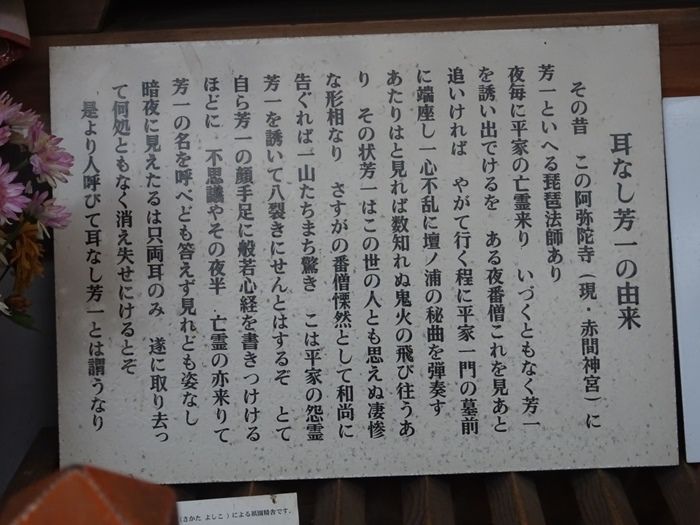 耳なし芳一の由来
その昔　この阿弥陀寺（現・赤間神宮）に
芳一といへる琵琶法師あり
夜毎に平家の亡霊来り　いづくともなく芳一
を誘い出でけるを　ある夜番僧これを見あと
追いければ　やがて行く程に平家一門の墓前
に端座し一心不乱に壇ノ浦の秘曲を弾奏す
あたりはと見れば数知れぬ鬼火の飛び往うあ
り　その状芳一はこの世の人とも思えぬ凄惨
な形相なり　さすがの番僧慄然として和尚に
告ぐれば一山たちまち驚き　こは平家の怨霊
芳一を誘いて八裂きにせんとはするぞ　とて
自ら芳一の顔手足に般若心経を書きつけける
ほどに　不思議やその夜半　亡霊の亦来りて
芳一の名を呼べども答えず見れども姿なし
暗夜に見えたるは只両耳のみ　遂に取り去っ
て何処ともなく消え失せにけるとぞ
是より人呼びて耳なし芳一とは謂うなり
（さかた よしこ）による祇園精舎です。